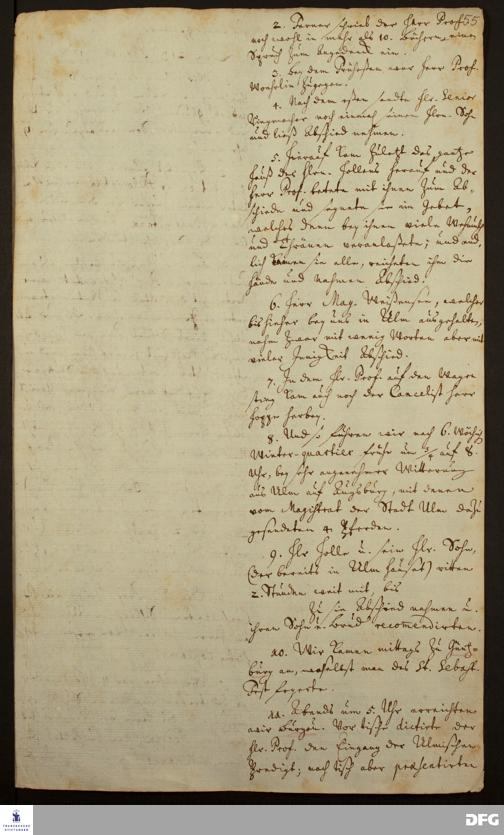 55
2. Ferner schrieb der Herr Prof.
noch wohl in mehr als 10. Büchern einen
Spruch zum Angedenken ein.
3. Bey dem Frühessen war Herr Prof.
Woehrlin zugegen.
4. Nach dem eßen sandte Hr. Senior
noch einmal seinen Hrn. Sohn
und ließ Abschied nehmen.
5. Hierauf kam zuletzt das gantze
Hauß des Hrn. Hollens herauf und der
Herr Prof. betete mit ihnen zum Ab-
schiede und segnete sie im Gebet,
welches denn bey ihnen viele Wehmuth
und Thränen veranlaßete; und end-
lich kamen sie alle, reichten ihm die
Hände und nahmen Abschied.
6. Herr Mag. Weißensee, welcher
bishieher bey uns in Ulm ausgehalten,
nahm zwar mit wenig Worten aber mit
vieler Innigkeit Abschied.
7. In dem Hr. Prof. auf den Wagen
stieg kam auch noch der Cancelist Herr
Hoppe herbey.
8. Und so fuhren wir nach 6. Wöchig.
Winter-quartier frühe um auf 8.
Uhr, bey sehr angenehmer Witterung
aus Ulm auf Augsburg, mit denen
vom Magistrat der Stadt Ulm dazu
gesendeten 4 Pferden.
9. Hr Holle u. sein Hr. Sohn,
(der bereits in Ulm hauset) ritten
2. Stunden weit mit, bis
zu sie Abschied nahmen u.
ihren Sohn u. Brud recomendirten.
10. Wir kamen mittags zu Güntz-
burg an, woselbst man des St. Sebast.
Fest feyerte.
11. Abends um 5. Uhr erreichten
wir Burgau. Vor tische dictirte der
Hr. Prof. den Eingang der Ulmischen
Predigt; nach tisch aber praesentirten
FRANCKESCHE
STIFTUNGEN
DFG